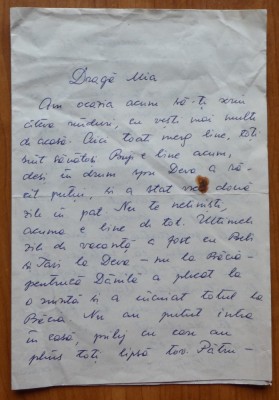 Dragă Mia
Am ocazia acum să-ți scriu
câteva rânduri, cu vești mai multe
de acasă. Aici toate merg bine, toți
sunt sănătoși. Puji e bine acum,
deși în drum spre Deva a ră-
cit puțin, și a stat vreo două
zile în pat. Nu te neliniști,
acuma e bine de tot. Ultimele
zile de vacanță a fost cu
și Tasi la Deva - nu la Băcia -
pentrucă Dănilă a plecat la
o nuntă și a încuiat totul la
Băcia. Nu au putut intra
în casă, prilej cu care au
plâns toți lipsa tov. Pătru -